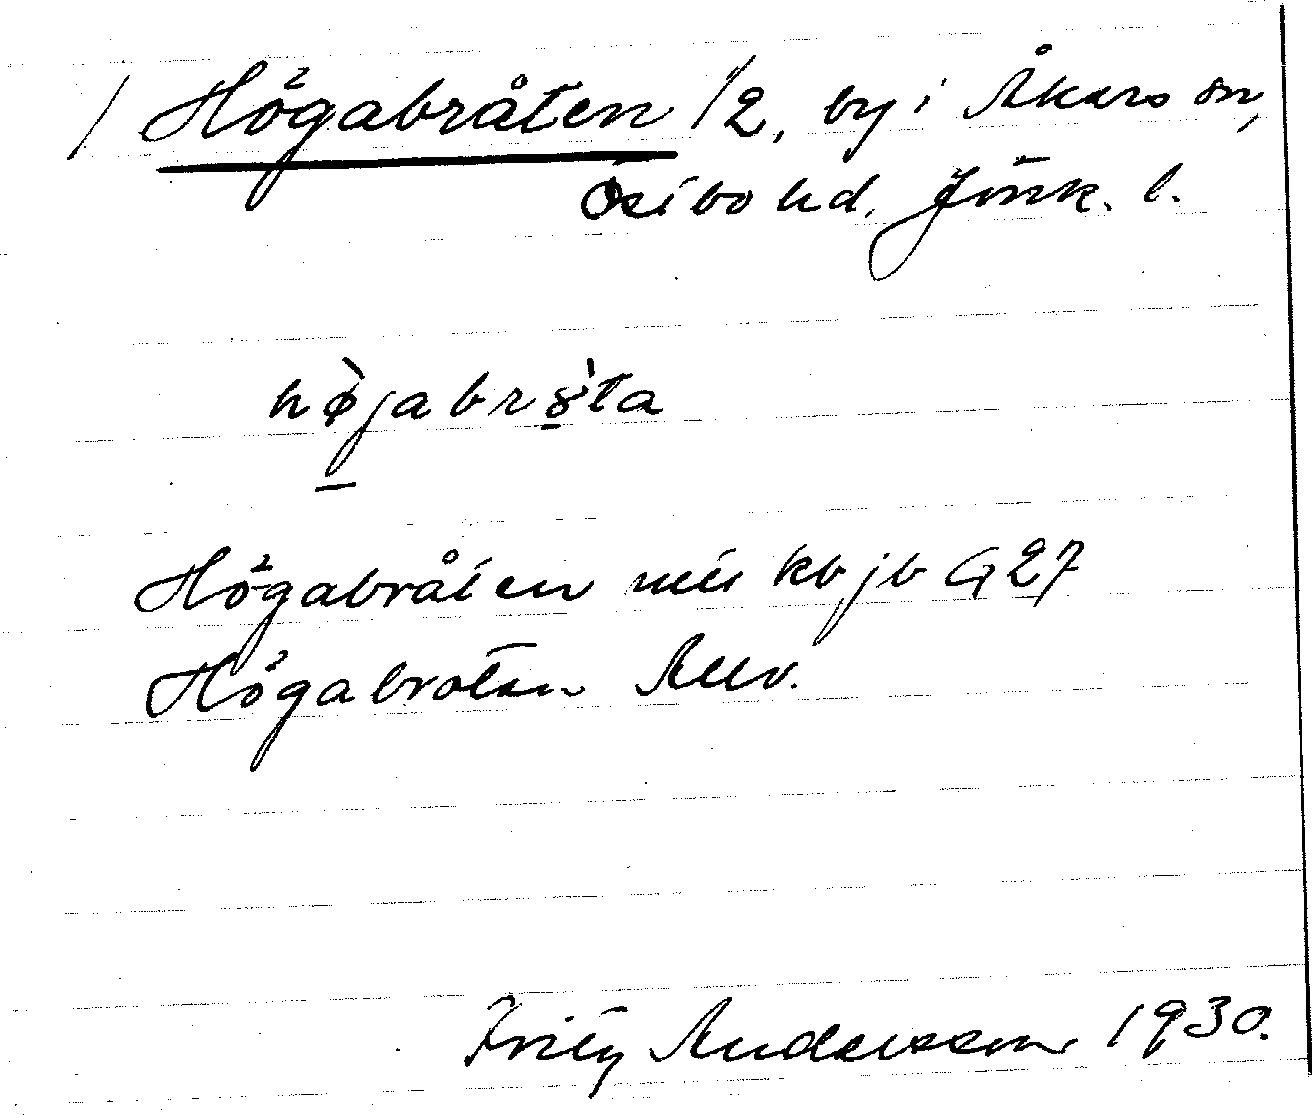 / Högabråten 1/2, by i Åkers sn,
Östbo hd, Jönk. l.
hø̀jabrɣ̀ta
Högabråten mtl kb jb G 27
Högabroten AUv.
Fritz Andersson 1930.